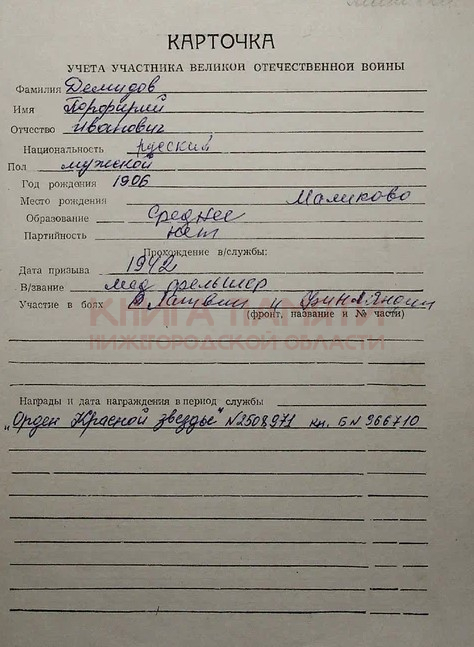 КАРТОЧКА
УЧЕТА УЧАСТНИКА ВЕЛИКОЙ ОТЕЧЕСТВЕННОЙ ВОЙНЫ
Фамилия Демидов
Имя Порфирий
Отчество Иванович
Национальность русский
Пол мужской
Год рождения 1906
Место рождения Маликово
Образование Среднее
Партийность нет
Прохождение в/службы:
Дата призыва 1942
В/звание мед фельшер
Участие в боях В Латвии и Финляндии
(фронт, название и № части)
КНИГА ПАМЯТИ
НИЖЕГОРОДСКОЙ ОБЛАСТИ
Награды и дата награждения в период службы
„Орден Красной звезды" №2508971 кн. Б№ 966710